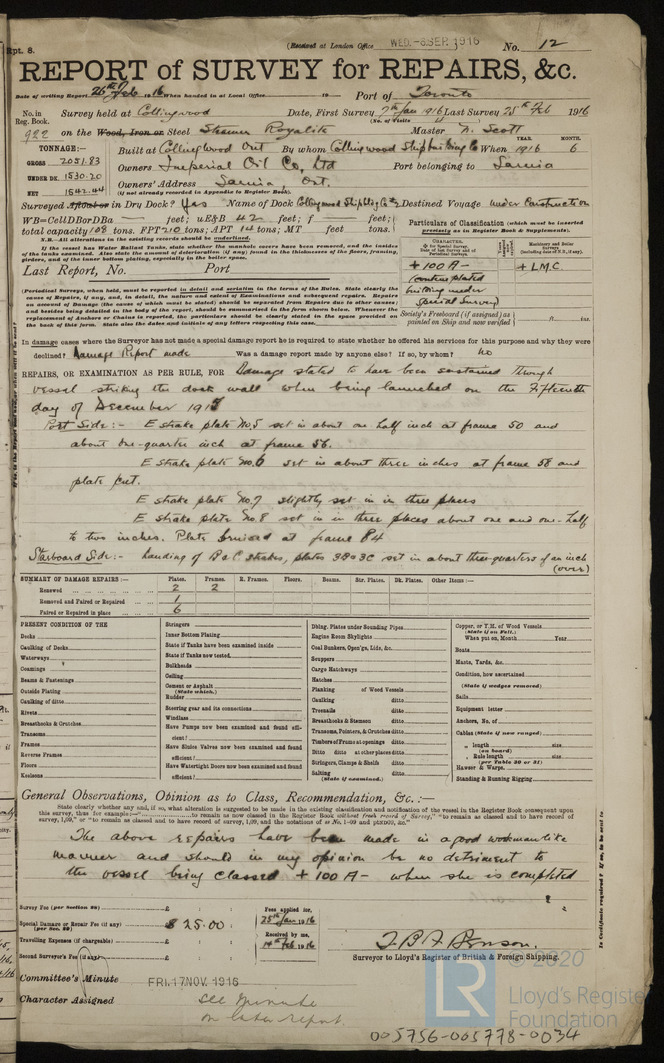 Rpt. 8.
(Received at London Office WED. -6 SEP 1916
No. 12
REPORT OF SURVEY for REPAIRS, &c.
Date of writing Report 26th Feb 1916 When handed in at Local Office 19 Port of Toronto
No. in Reg. Book. Survey held at Collingwood Date, First Survey 7th Jan 1916 Last Survey 25th Feb 1916
(No. of Visits
922 on the Wood, Iron or Steel Steamer Royalite Master N. Scott
TONNAGE:—
GROSS 2051.83
UNDER DK. 1530.20
NET 1542.44
Built at Collingwood Ont By whom Collingwood Shipbuilding Co When 1916 6
YEAR. MONTH.
Owners Imperial Oil Co, Ltd Port belonging to Sarnia
Owners' Address Sarnia Ont.
(if not already recorded in Appendix to Register Book).
Surveyed Afloat or in Dry Dock? Yes Name of Dock Collingwood Shipbldg Co Destined Voyage under Construction
WB=CellDBorDBa — feet; uE&B 42 feet; f — feet;
total capacity 108 tons. FPT 210 tons; APT 14 tons; MT feet tons.
N.B.—All alterations in the existing records should be underlined.
If the vessel has Water Ballast Tanks, state whether the manhole covers have been removed, and the insides
of the tanks examined. Also the amount of deterioration (if any) found in the thicknesses of the floors, framing,
girders, and of the inner bottom plating, especially in the boiler space.
Last Report, No. Port
Particulars of Classification (which must be inserted
precisely as in Register Book & Supplements).
CHARACTER.
+ 100 A-
(contemplated
building under
Special Survey)
+ L.M.C.
Society's Freeboard (if assigned) as
painted on Ship and now verified ft. ins.
(Periodical Surveys, when held, must be reported in detail and seriatim in the terms of the Rules. State clearly the
cause of Repairs, if any, and, in detail, the nature and extent of Examinations and subsequent repairs. Repairs
on account of Damage (the cause of which must be stated) should be separated from Repairs due to other causes;
and besides being detailed in the body of the report, should be summarized in the form shown below. Whenever the
replacement of Anchors or Chains is reported, the particulars should be clearly stated in the space provided on
the back of this form. State also the dates and initials of any letters respecting this case.
In damage cases where the Surveyor has not made a special damage report he is required to state whether he offered his services for this purpose and why they were
declined? Damage Report made Was a damage report made by anyone else? If so, by whom? no
REPAIRS, OR EXAMINATION AS PER RULE, FOR Damage stated to have been sustained through
vessel striking the dock wall when being launched on the Fifteenth
day of December 1915
Port Side:- E strake plate No. 5 set in about one half inch at frame 50 and
about one-quarter inch at frame 56.
E strake plate No. 6 set in about three inches at frame 58 and
plate cut.
E strake plate No. 7 slightly set in in three places
E strake plate No. 8 set in in three places about one and one-half
to two inches. Plate bruised at frame 84
Starboard Side:- Landing of B & C strakes, plates 3B & 3C set in about three-quarters of an inch
(over)
SUMMARY OF DAMAGE REPAIRS:— Plates. Frames. R. Frames. Floors. Beams. Str. Plates. Dk. Plates. Other Items:—
Renewed 2 2
Removed and Faired or Repaired 1
Faired or Repaired in place 6
PRESENT CONDITION OF THE
Decks
Caulking of Decks
Waterways
Coamings
Beams & Fastenings
Outside Plating
Caulking of ditto
Rivets
Breasthooks & Crutches
Transoms
Frames
Reverse Frames
Floors
Keelsons
Stringers
Inner Bottom Plating
State if Tanks have been examined inside
State if Tanks now tested
Bulkheads
Ceiling
Cement or Asphalt
(State which.)
Rudder
Steering gear and its connections
Windlass
Have Pumps now been examined and found effi-
cient?
Have Sluice Valves now been examined and found
efficient?
Have Watertight Doors now been examined and found
efficient?
Dblng. Plates under Sounding Pipes
Engine Room Skylights
Coal Bunkers, Open'gs, Lids, &c.
Scuppers
Cargo Hatchways
Hatches
Planking of Wood Vessels
Caulking ditto
Treenails ditto
Breasthooks & Stemson ditto
Transoms, Pointers, & Crutches ditto
Timbers of Frame at openings ditto
Ditto ditto at other places ditto
Stringers, Clamps & Shelfs ditto
Salting ditto
(State if examined.)
Copper, or Y.M. of Wood Vessels
(State if on Felt.)
When put on, Month Year
Boats
Masts, Yards, &c.
Condition, how ascertained
(State if wedges removed)
Sails
Equipment letter
Anchors, No. of
Cables (State if now ranged)
„ length size
(on board)
„ Rule length size
(per Table 30 or 31)
Hawser & Warps
Standing & Running Rigging
General Observations, Opinion as to Class, Recommendation, &c.:—
State clearly whether any, and if so, what alteration is suggested to be made in the existing classification and notification of the vessel in the Register Book consequent upon
this survey, thus for example:—
The above repairs have been made in a good workmanlike
manner and should in my opinion be no detriment to
the vessel being classed + 100 A- when she is completed
Survey Fee (per Section 28) £ : :
Special Damage or Repair Fee (if any) $ 25.00
Travelling Expenses (if chargeable) £ : :
Second Surveyor's Fee (if any) £ : :
Fees applied for,
25th Jan 1916
Received by me,
14th Feb 1916
T. B. F. Benson.
Surveyor to Lloyd's Register of British & Foreign Shipping.
Committee's Minute FRI. 17 NOV. 1916
Character Assigned see minute
on later report.
© 2020
LR
Lloyd's Register
Foundation
005756-005778-0034